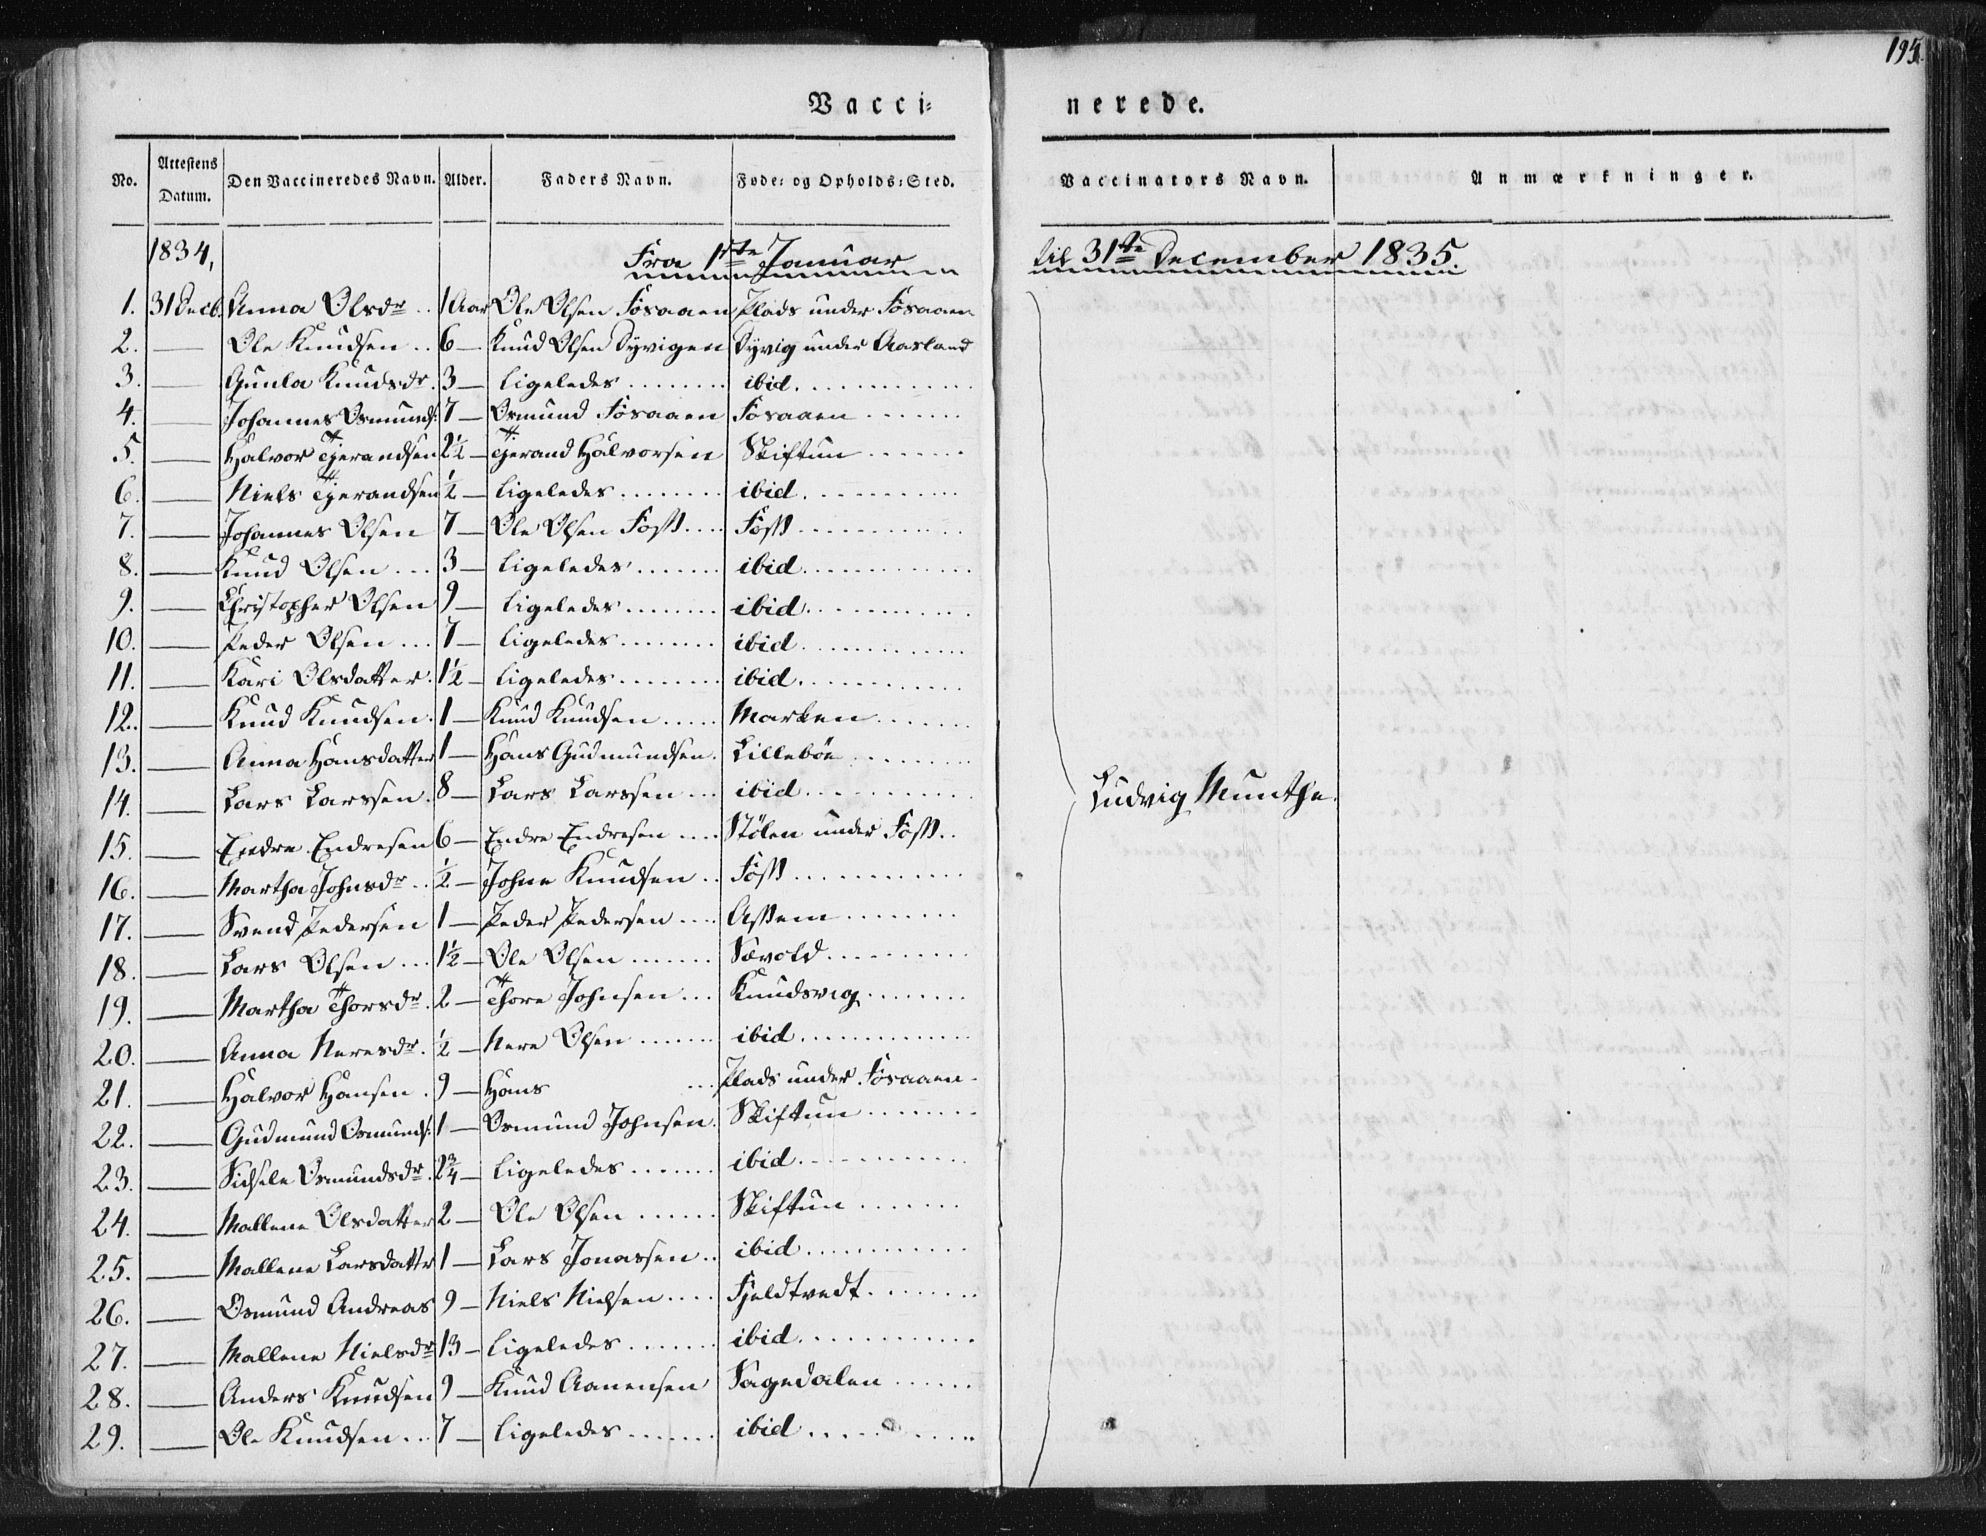 195.
Vacci= nerede.
No. Attestens Datum. Den Vaccineredes Navn. Alder. Faders Navn. Føde= og Opholds=Sted. Vaccinators Navn. Anmærkninger.
1834, Fra 1ste Januar til 31te December 1835.
1. 31 Decb. Anna Olsdr .. 1 Aar Ole Olsen Fosaaen Plads under Fosaaen
2. — Ole Knudsen .. 6 — Knud Olsen Dyvigen Dyvig under Aasland
3. — Gunla Knudsdr. 3 — ligeledes ........ ibid.............
4. — Johannes Osmunds: 7 — Osmund Fosaaen Fosaaen .......
5. — Halvor Tjerandsen 2½ — Tjerand Halvorsen Skiftun .......
6. — Niels Tjerandsen ½ — ligeledes ........ ibid.............
7. — Johannes Olsen 7 — Ole Olsen Foss.... Foss............
8. — Knud Olsen ... 3 — ligeledes ....... ibid.............
9. — Christopher Olsen 9 — ligeledes........ ibid.............
10. — Peder Olsen ... 7 — ligeledes ........ ibid.............
11. — Kari Olsdatter. 1½ — ligeledes ........ ibid.............
12. — Knud Knudsen. 1 — Knud Knudsen ..... Marken .......
13. — Anna Hansdatter 1 — Hans Gudmundsen. Lillebøe .........
14. — Lars Larssen. 8 — Lars Larssen ... ibid.............
15. — Endre Endresen 6 — Endre Endresen .... Stølen under Foss..
16. — Martha Johnsdr .. ½ — Johne Knudsen .. Foss ............
17. — Svend Pedersen 1 — Peder Pedersen .... Assem ........
18. — Lars Olsen ... 1½ — Ole Olsen ....... Sævold..........
19. — Martha Thorsdr. 2 — Thore Johnsen ... Knudsvig........
20. — Anna Neresdr. ½ — Nere Olsen ....... ibid.............
21. — Halvor Hansen . 9 — Hans ... Plads under Fosaaen.
22. — Gudmund Osmunds: 1 — Osmund Johnsen. Skiftun ........
23. — Sidsele Osmundsdr. 2¾ — ligeledes ....... ibid.............
24. — Mallene Olsdatter 2 — Ole Olsen ...... Skiftun .......
25. — Mallene Larsdatter 1 — Lars Jonassen.. ibid............
26. — Osmund Andreas 9 — Niels Nielsen.... Fjeldtvedt........
27. — Mallene Nielsdr 13 — ligeledes ....... ibid.............
28. — Anders Knudsen 9 — Knud Aanensen Fagedalen ......
29. — Ole Knudsen ... 7 — ligeledes ....... ibid.............
Ludvig Munthe.